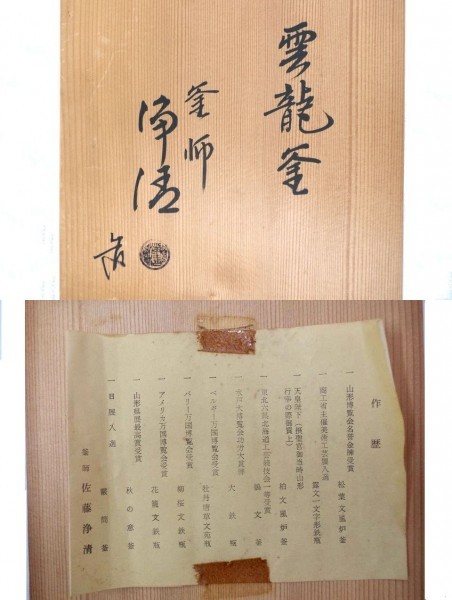 雲龍釜
釜師
浄清
作歴
一 山形博覧会名誉金牌受賞 松葉文風炉釜
一 商工省主催美術工芸展入選 霰文一文字形鉄瓶
一 天皇陛下(摂政宮御当時山形
行幸の際御買上) 松文風炉釜
一 東北六県北海道工芸競技会一等賞受賞 文釜
一 大博覧会功労大賞牌 大鉄瓶
一 ベルギー万国博覧会受賞 牡丹唐草文花瓶
一 パリー万国博覧会受賞 桜文鉄瓶
一 アメリカ万国博覧会受賞 花籠文鉄瓶
一 山形県展最高賞受賞 秋の意釜
一 日展入選 釜
釜師 佐藤浄清